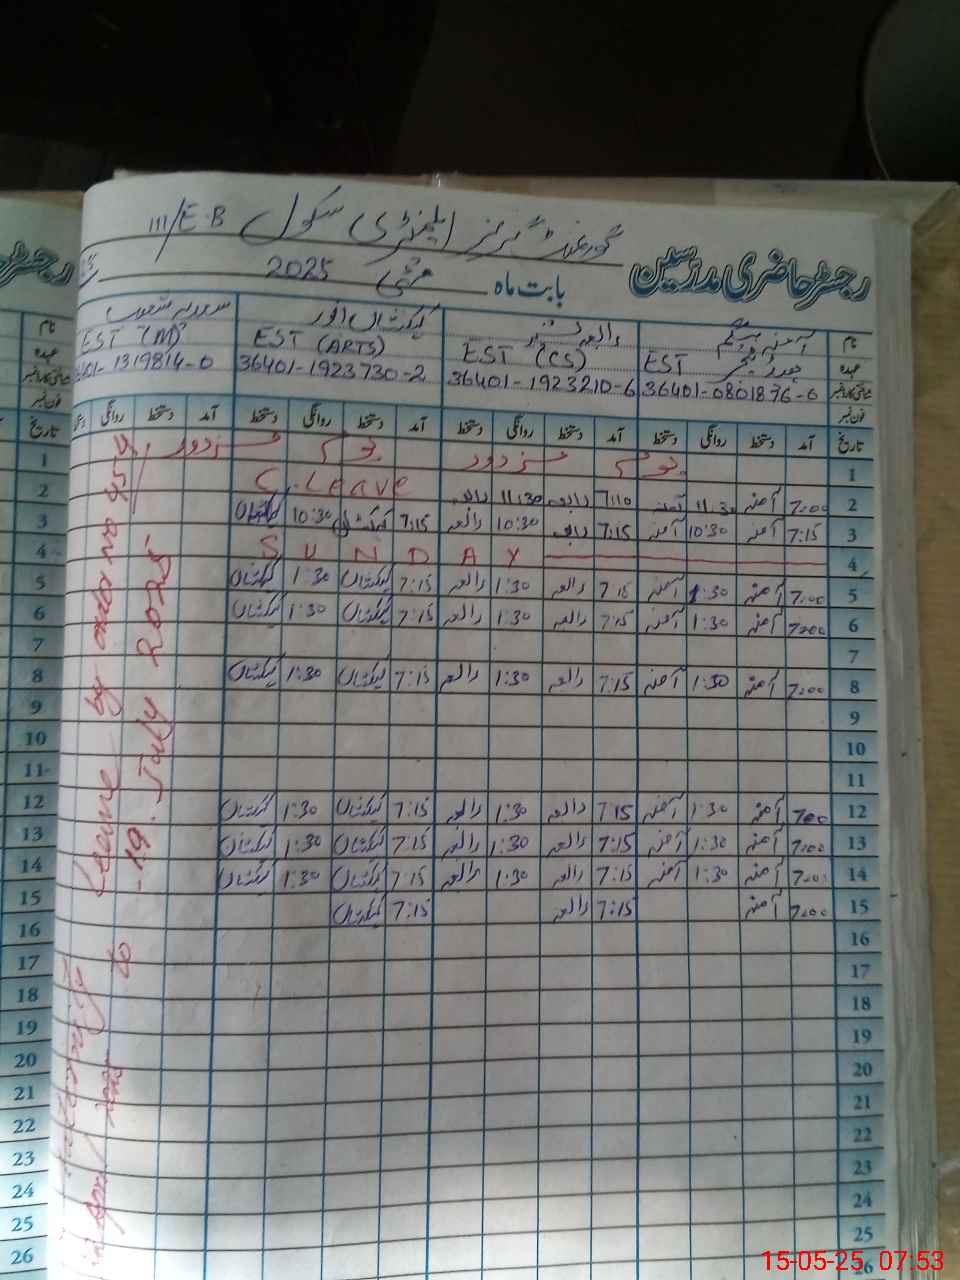 گورنمنٹ گرلز ایلیمنٹری سکول 111/E-B
رجسٹر حاضری مدرسین
بابت ماہ مئی 2025
نام آمنہ بیگم رابعہ کہکشاں انور
عہدہ ہیڈ مسٹریس EST EST (CS) EST (ARTS) EST (M)
شناختی کارڈ نمبر 36401-0801876-0 36401-1923210-6 36401-1923730-2 1319814-0
فون نمبر
تاریخ آمد دستخط روانگی دستخط آمد دستخط روانگی دستخط آمد دستخط روانگی دستخط آمد دستخط روانگی تاریخ
1 یوم مزدور یوم مزدور 1
2 7:00 آمنہ 11:30 آمنہ 7:10 رابعہ 11:30 رابعہ C. Leave 2
3 7:15 آمنہ 10:30 آمنہ 7:15 رابعہ 10:30 رابعہ 7:15 کہکشاں 10:30 کہکشاں 3
4 SUNDAY 4
5 7:00 آمنہ 1:30 آمنہ 7:15 رابعہ 1:30 رابعہ 7:15 کہکشاں 1:30 کہکشاں 5
6 7:00 آمنہ 1:30 آمنہ 7:15 رابعہ 1:30 رابعہ 7:15 کہکشاں 1:30 کہکشاں 6
7 7
8 7:00 آمنہ 1:30 آمنہ 7:15 رابعہ 1:30 رابعہ 7:15 کہکشاں 1:30 کہکشاں 8
9 9
10 10
11 11
12 7:00 آمنہ 1:30 آمنہ 7:15 رابعہ 1:30 رابعہ 7:15 کہکشاں 1:30 کہکشاں 12
13 7:00 آمنہ 1:30 آمنہ 7:15 رابعہ 1:30 رابعہ 7:15 کہکشاں 1:30 کہکشاں 13
14 7:00 آمنہ 1:30 آمنہ 7:15 رابعہ 1:30 رابعہ 7:15 کہکشاں 1:30 کہکشاں 14
15 7:00 آمنہ 7:15 رابعہ 7:15 کہکشاں 15
16 16
17 17
18 18
19 19
20 20
21 21
22 22
23 23
24 24
25 25
26 26
by order no
to 19 July 2025
15-05-25 07:53